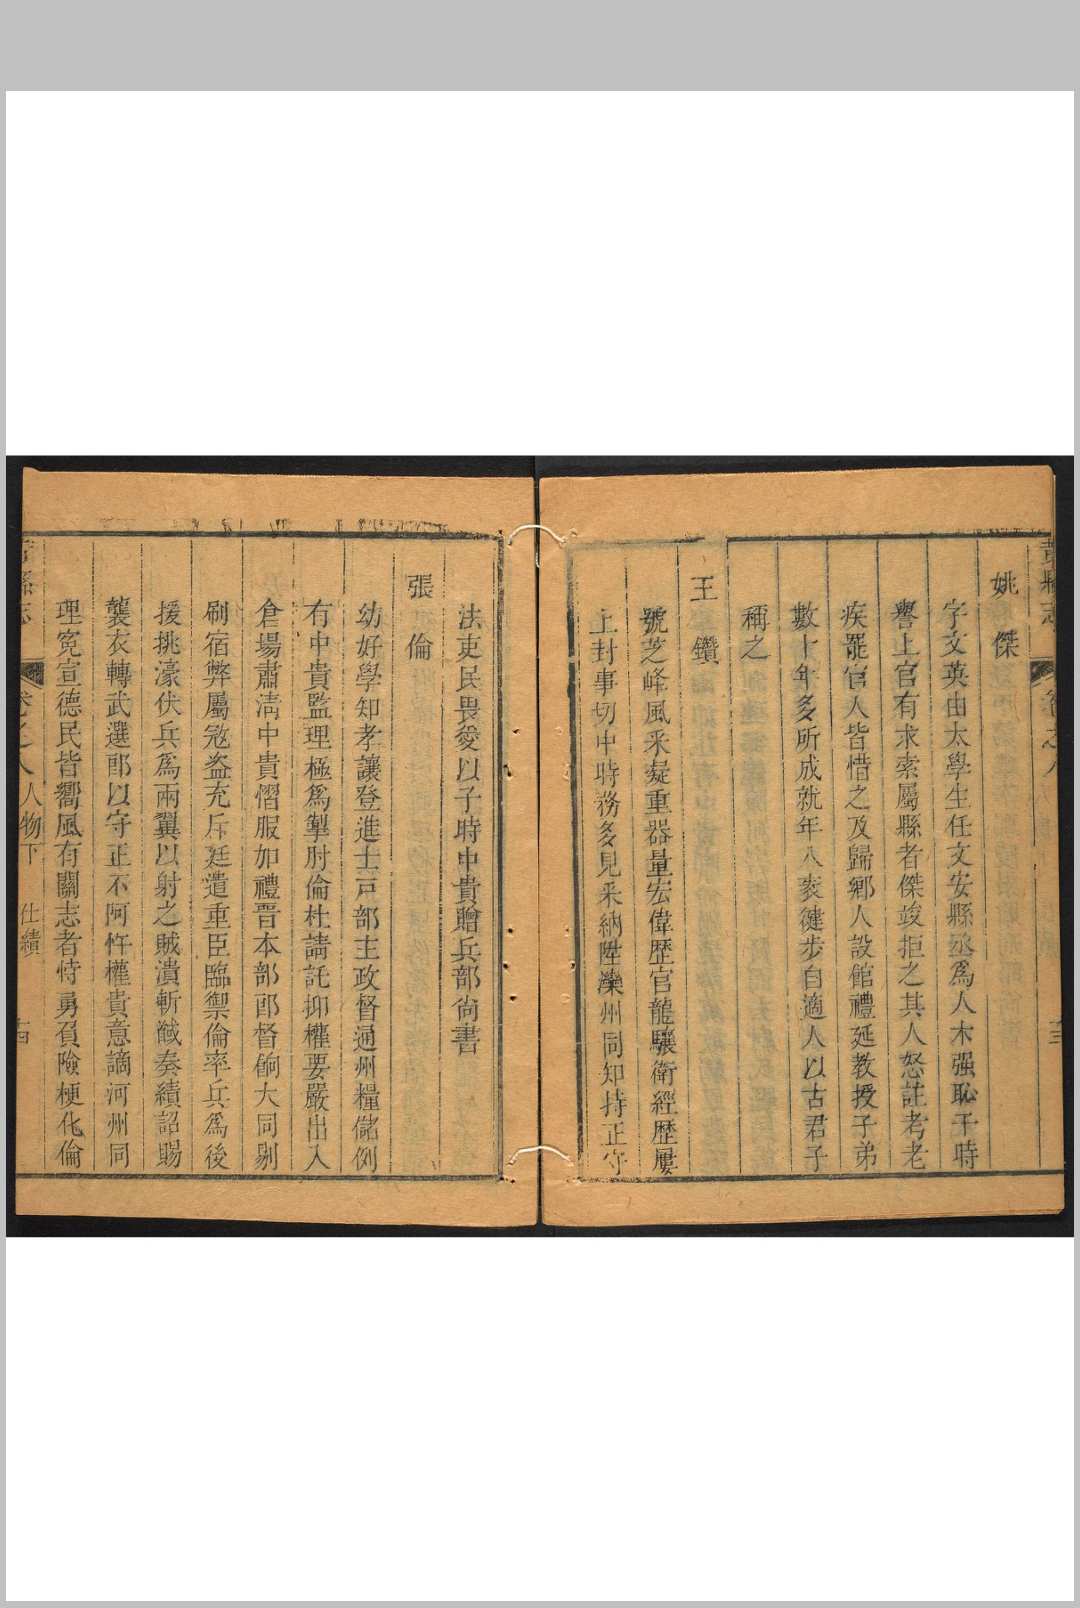 黃縣志 卷之八 十三
姚 傑
字文英由太學生任文安縣丞爲人木强恥干時
譽上官有求索屬縣者傑竣拒之其人怒註考老
疾罷官人皆惜之及歸鄉人設館禮延教授子弟
數十年多所成就年八袠徤步自適人以古君子
稱之
王 鑽
號芝峰風采凝重器量宏偉歷官龍驤衛經歷屢
上封事切中時務多見采納陞灤州同知持正守
法吏民畏愛以子時中貴贈兵部尚書
張 倫
幼好學知孝讓登進士戸部主政督通州糧儲例
有中貴監理極爲掣肘倫杜請託抑權要嚴出入
倉場肅清中貴慴服加禮晋本部郎督餉大同剔
刷宿弊屬寇盗充斥廷遣重臣臨禦倫率兵爲後
援挑濠伏兵爲兩翼以射之賊潰斬馘奏績詔賜
襲衣轉武選郎以守正不阿忤權貴意謫河州同
理寃宣德民皆嚮風有關志者恃勇負險梗化倫
黃縣志 卷之八 人物下 仕績 十四